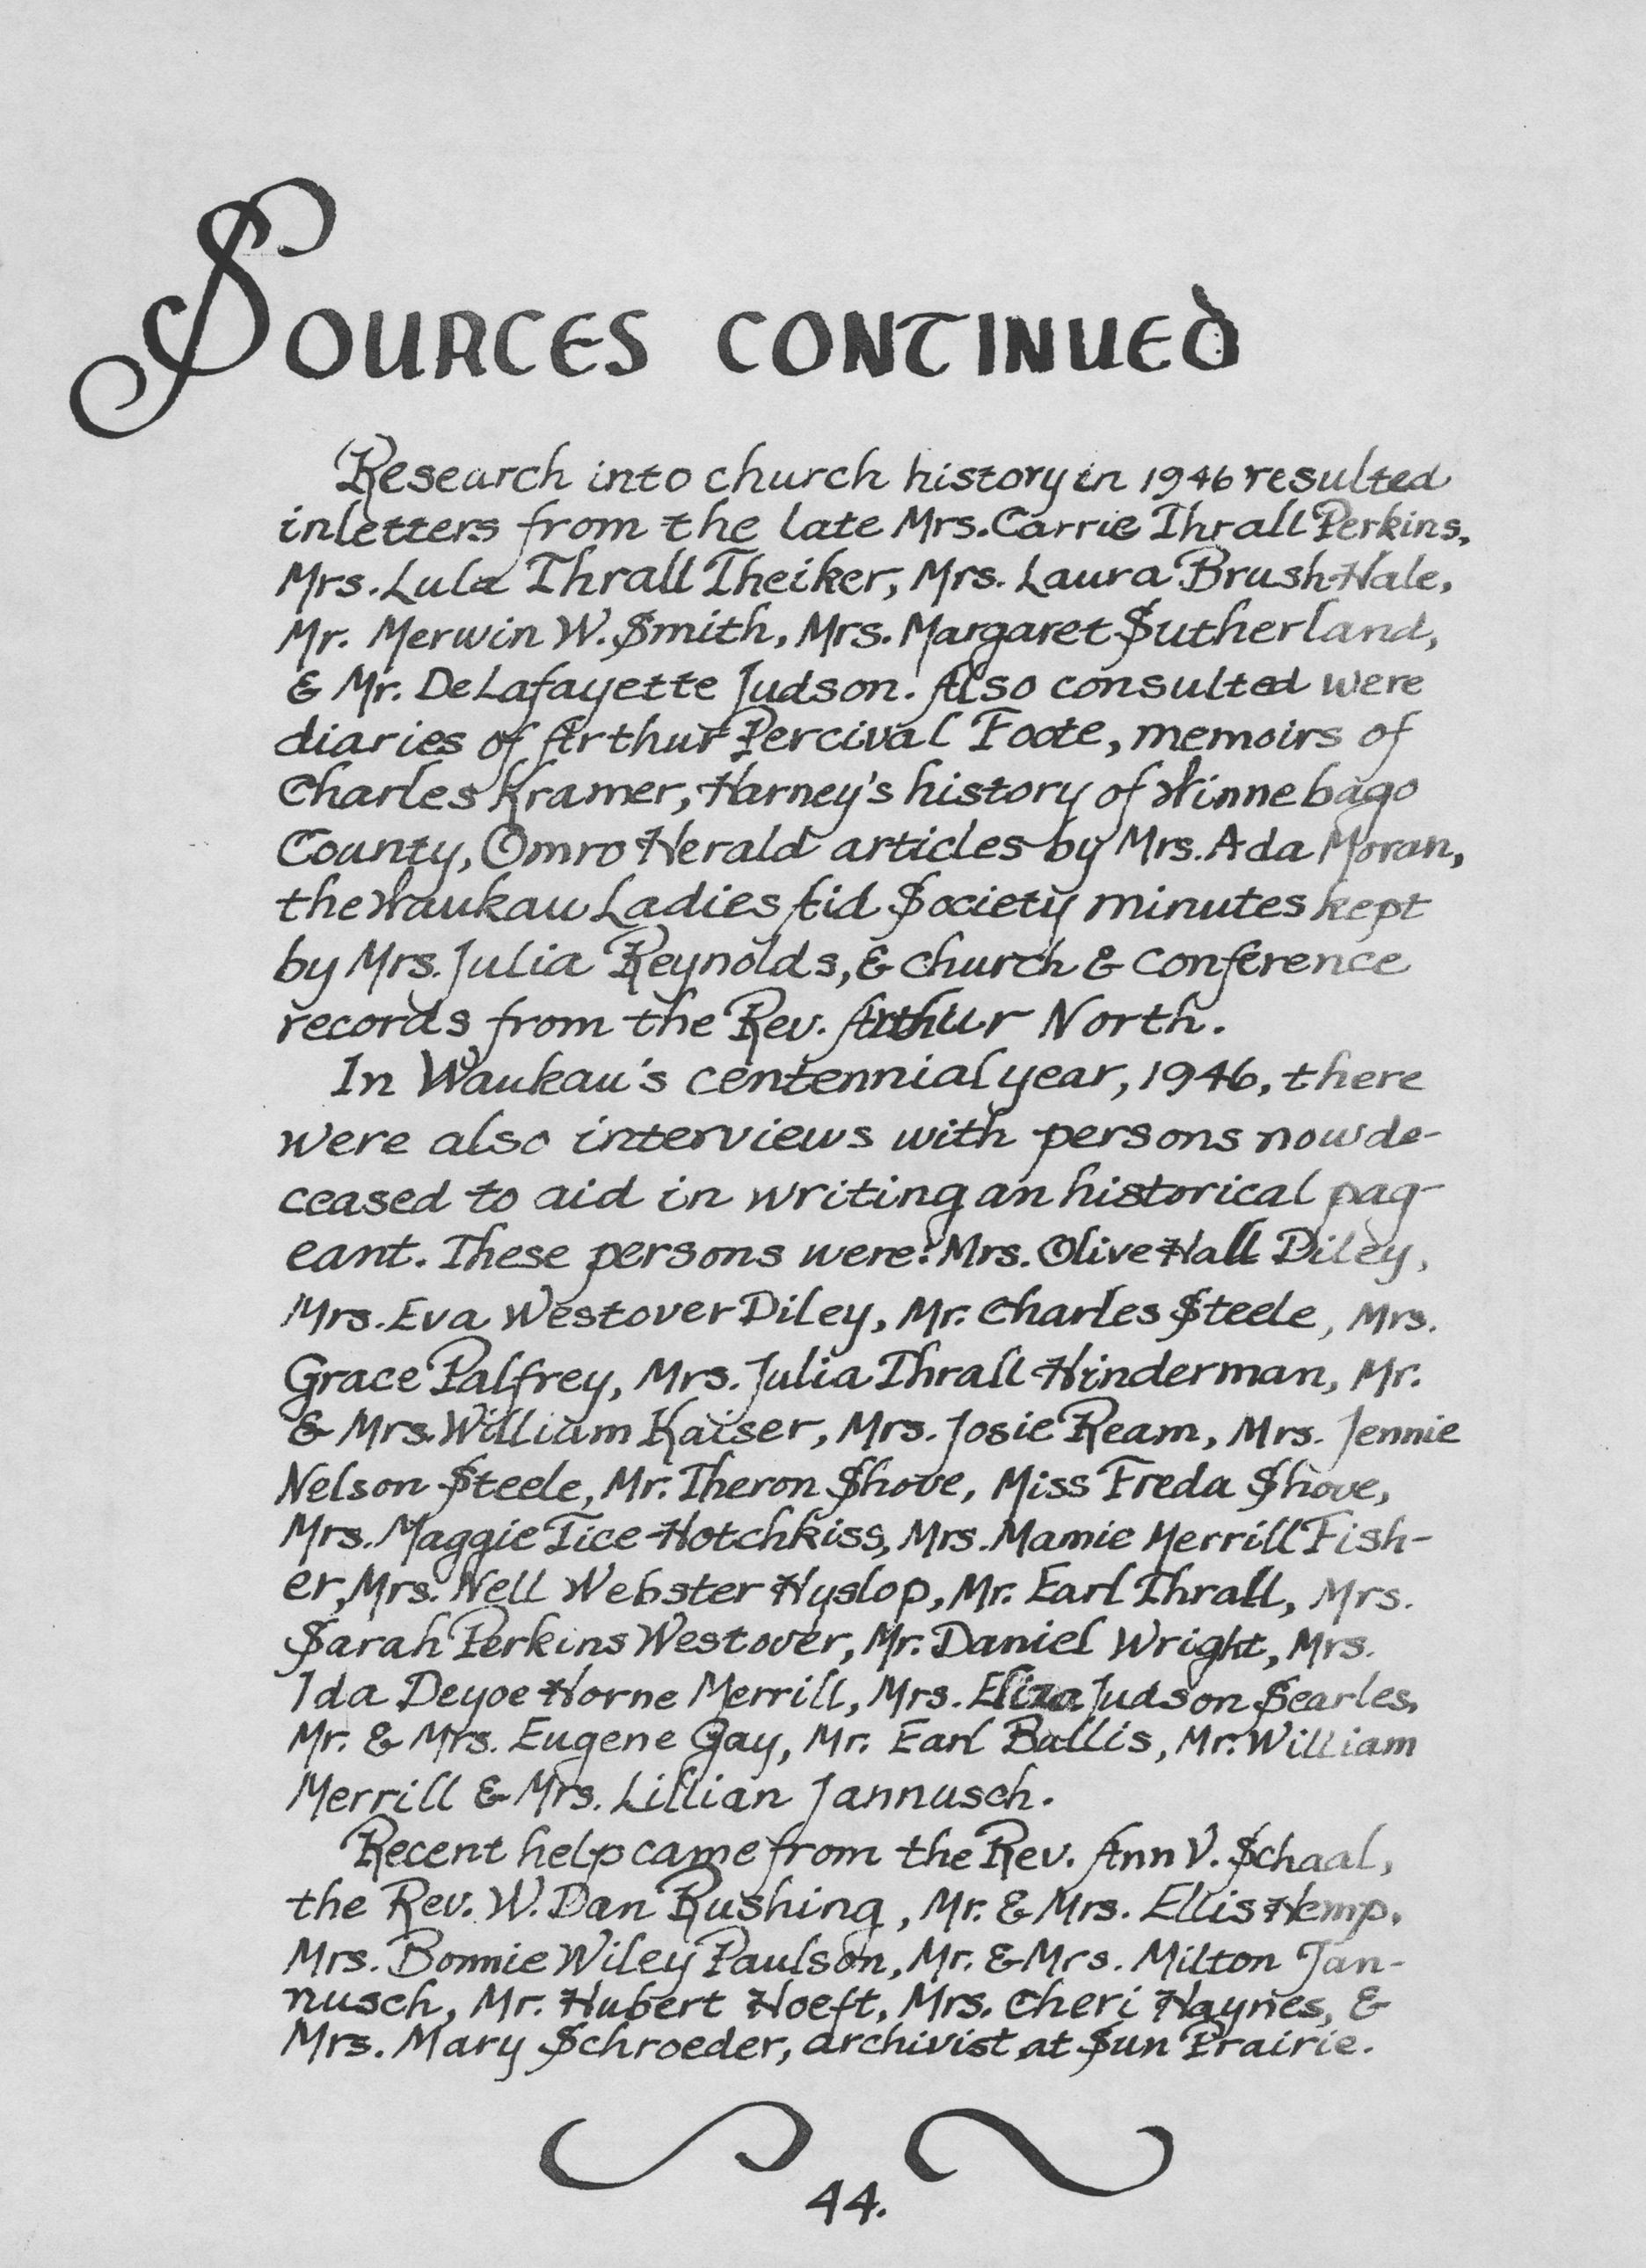 SOURCES CONTINUED
Research into church history in 1946 resulted
in letters from the late Mrs. Carrie Thrall Perkins,
Mrs. Lula Thrall Theiker, Mrs. Laura Brush Hale,
Mr. Merwin W. Smith, Mrs. Margaret Sutherland,
& Mr. DeLafayette Judson. Also consulted were
diaries of Arthur Percival Foote, memoirs of
Charles Kramer, Harney's history of Winnebago
County, Omro Herald articles by Mrs. Ada Moran,
the Waukau Ladies Aid Society minutes kept
by Mrs. Julia Reynolds, & church & conference
records from the Rev. Arthur North.
In Waukau's centennial year, 1946, there
were also interviews with persons now de-
ceased to aid in writing an historical pag-
eant. These persons were: Mrs. Olive Hall Diley,
Mrs. Eva Westover Diley, Mr. Charles Steele, Mrs.
Grace Palfrey, Mrs. Julia Thrall Hinderman, Mr.
& Mrs. William Kaiser, Mrs. Josie Ream, Mrs. Jennie
Nelson Steele, Mr. Theron Shove, Miss Freda Shove,
Mrs. Maggie Tice Hotchkiss, Mrs. Mamie Merrill Fish-
er, Mrs. Nell Webster Hyslop, Mr. Earl Thrall, Mrs.
Sarah Perkins Westover, Mr. Daniel Wright, Mrs.
Ida Deyoe Horne Merrill, Mrs. Eliza Judson Searles,
Mr. & Mrs. Eugene Gay, Mr. Earl Ballis, Mr. William
Merrill & Mrs. Lillian Jannusch.
Recent help came from the Rev. Ann V. Schaal,
the Rev. W. Dan Rushing, Mr. & Mrs. Ellis Hemp,
Mrs. Bonnie Wiley Paulson, Mr. & Mrs. Milton Jan-
nusch, Mr. Hubert Hoeft, Mrs. Cheri Haynes, &
Mrs. Mary Schroeder, archivist at Sun Prairie.
44.